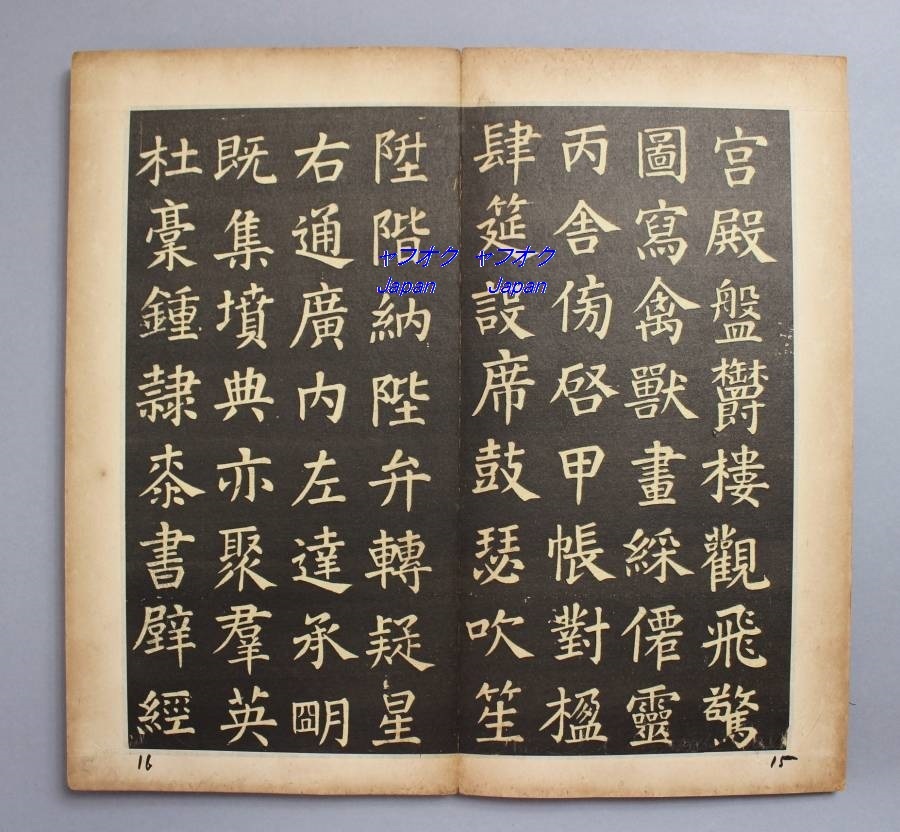 宫殿盤鬱樓觀飛驚
圖寫禽獸畫綵僊靈
丙舍傍啓甲帳對楹
肆筵設席鼓瑟吹笙
陞階納陛弁轉疑星
右通廣内左達承朙
既集墳典亦聚羣英
杜稾鍾隸桼書壁經
ャフオク
Japan
ャフオク
Japan
15
16